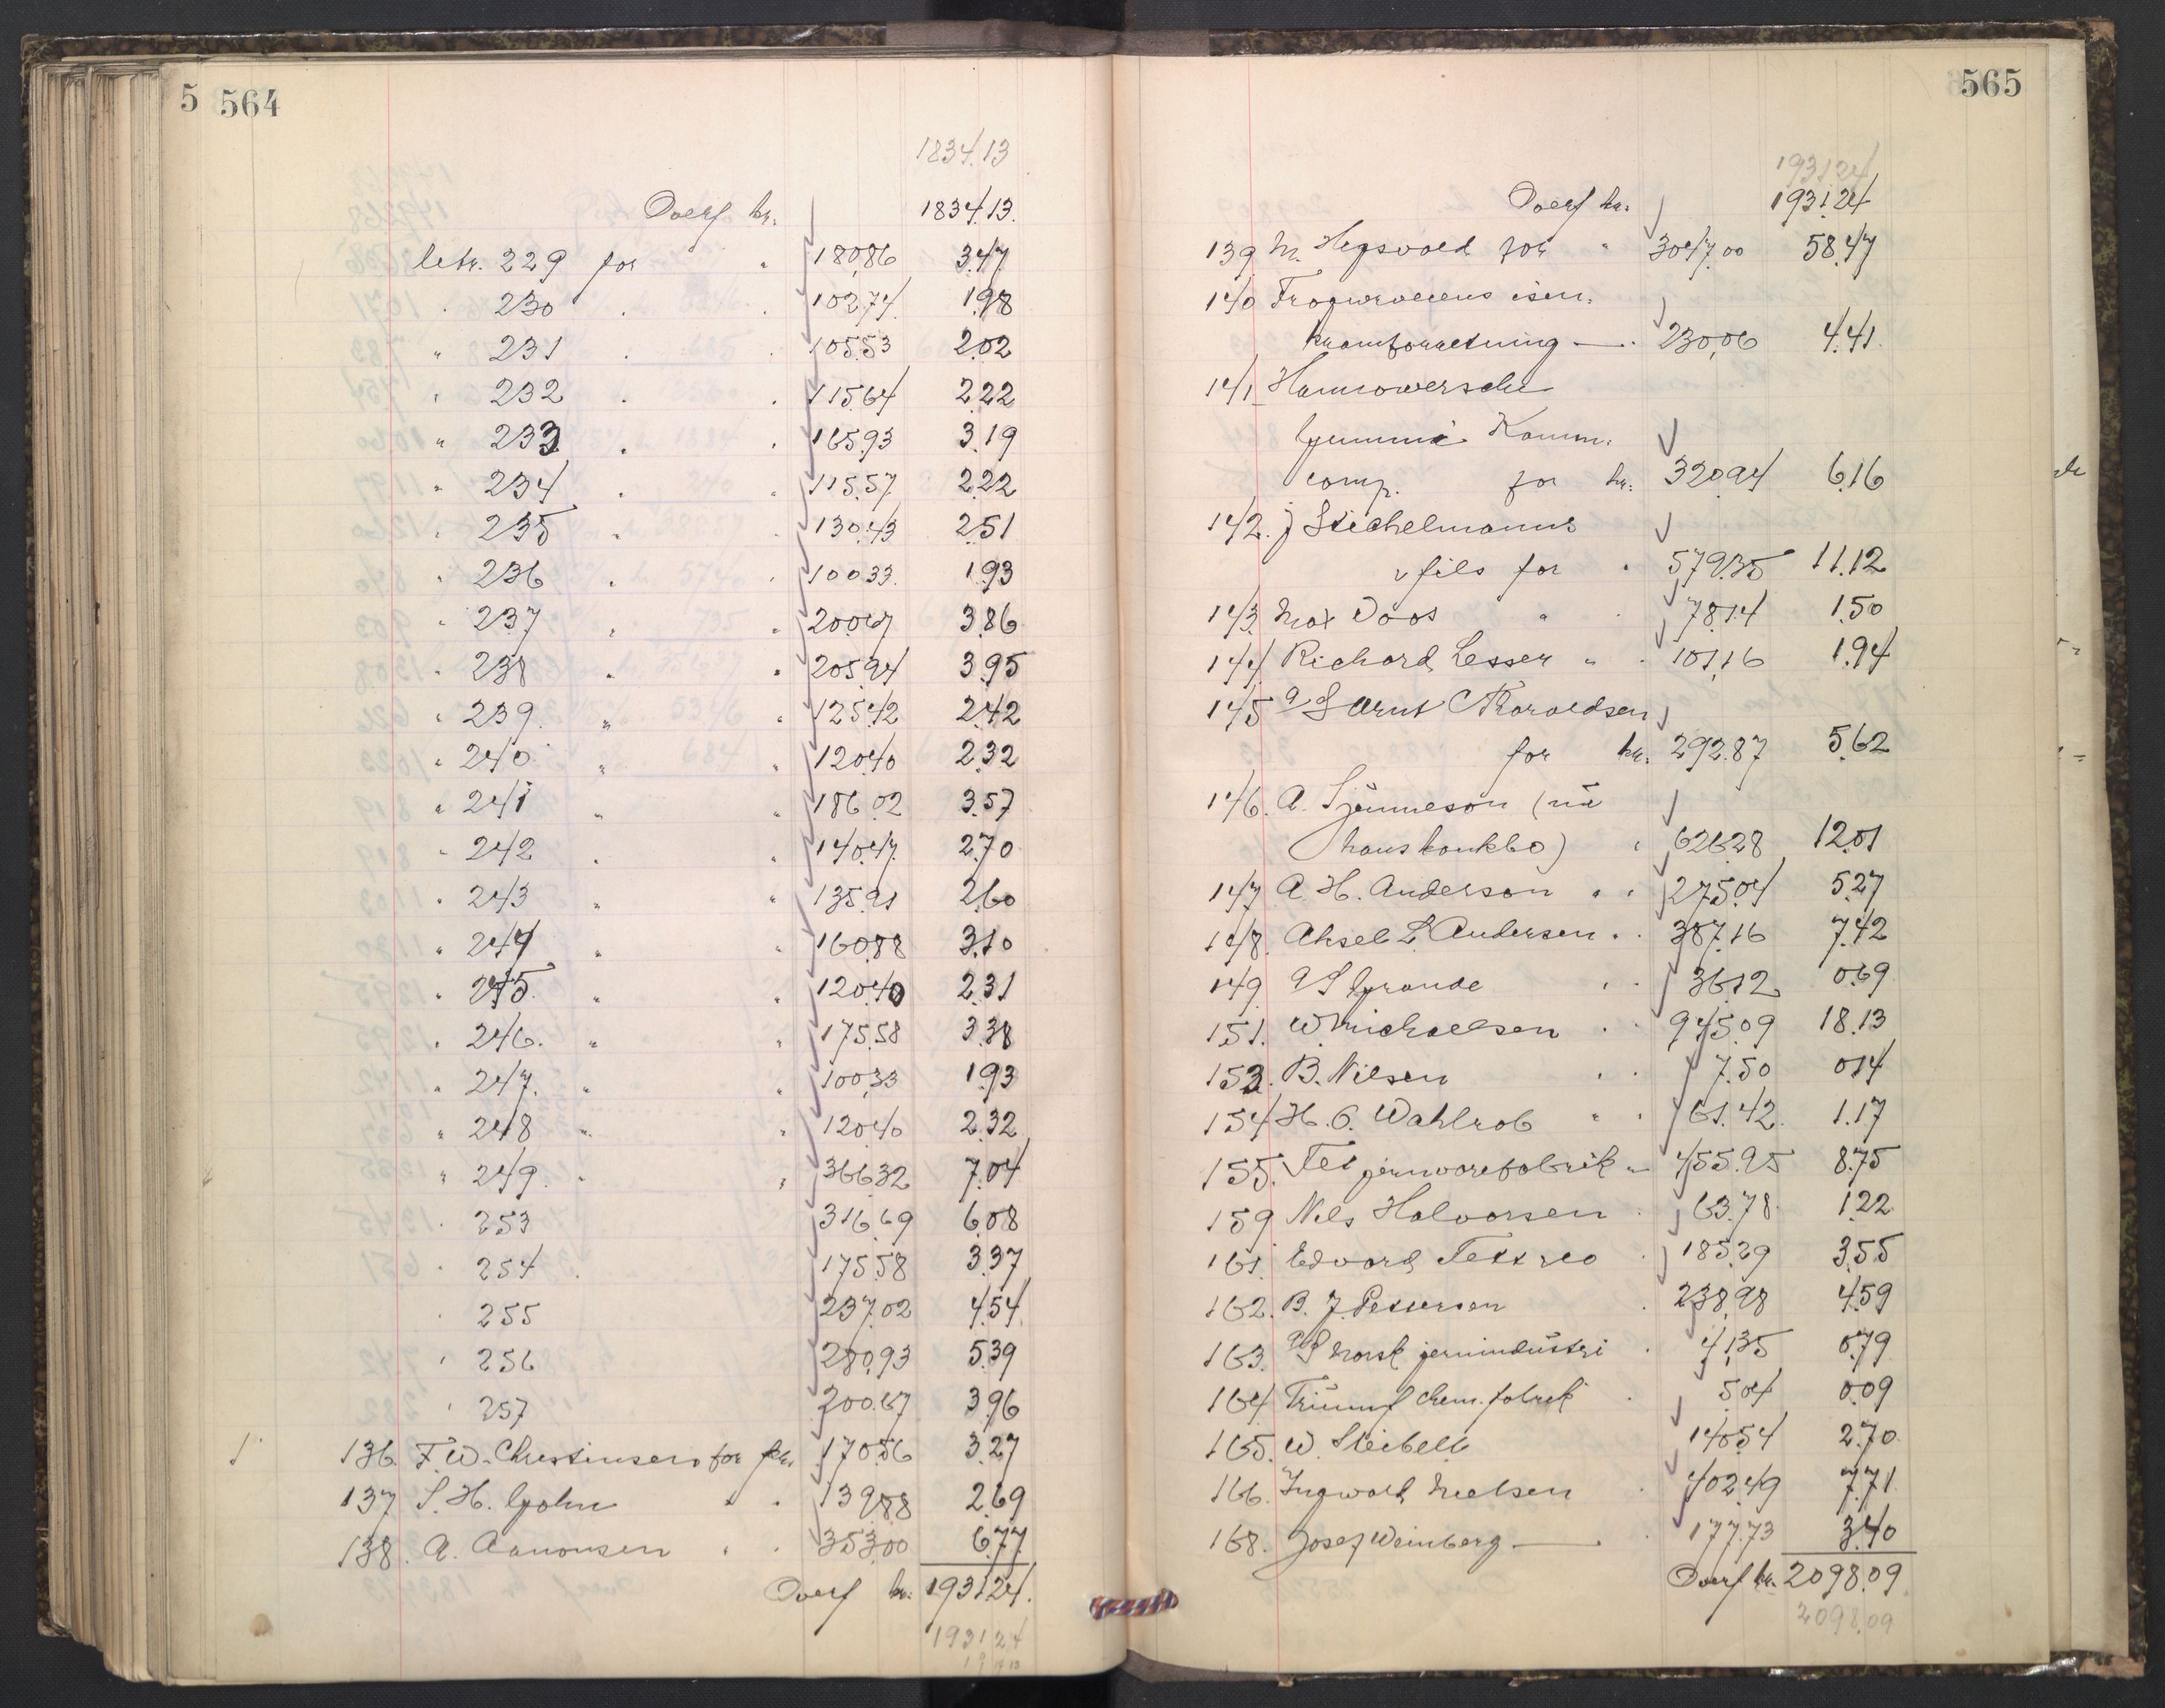 5 564
1834.13
Overf kr. 1834.13.
letr. 229 for " 180,86 3.47
" 230 " " 102,74 1.98
" 231 " " 105.53 2.02
" 232 " " 115.64 2.22
" 233 " " 165.93 3.19
" 234 " " 115.57 2.22
" 235 " " 130.43 2.51
" 236 " " 100.33 1.93
" 237 " " 200.67 3.86
" 238 " " 205.94 3.95
" 239 " " 125.42 2.42
" 240 " " 120.40 2.32
" 241 " " 186.02 3.57
" 242 " " 140.47 2.70
" 243 " " 135.91 2.60
" 244 " " 160.88 3.10
" 245 " " 120.40 2.31
" 246. " " 175.58 3.38
" 247. " " 100.33 1.93
" 248 " " 120.40 2.32
" 249. " " 366.32 7.04
" 253 316.69 6.08
" 254 175.58 3.37
" 255 237.02 4.54
" 256 280.93 5.39
" 257 200.67 3.96
136. F. W. Christinsen for kr. 170.56 3.27
137 S. H. Gjohn " " 139.88 2.69
138. A. Aanonsen " " 353.00 6.77
Overf kr. 1931.24.
1931 24
565
1931 24
Overf kr. 1931.24
139 M. Hegsvold for " 3047.00 58.47
140 Frognerveiens isen.
kramforretning — " 230,06 4.41.
141 Hannowersche
Gummi Kamm.
comp. for kr. 320.94 6.16
142. J Stichelmanns
& fils for " 579.35 11.12
143. Max Voos " " 78.14 1.50
144 Richard Lesser " " 101,16 1.94
145 A/S Arnt Tharaldsen
for kr. 292.87 5.62
146. A. Sjünneson (nü
hans konkbo) " 626.28 12.01
147 A. H. Anderson " " 275.04 5.27
148. Aksel L. Andersen " " 387.16 7.42
149 A/S Grande " " 36.12 0.69
151. W. Michaelsen " " 945.09 18.13
153. B. Nilsen " " 7.50 0.14
154 H. O. Wahlrob " " 61.42 1.17
155. Fei jernvarefabrik " 455.95 8.75
159 Nils Halvorsen " 63.78 1.22
161. Edvard 185.29 3.55
162. B. J. Pettersen " 238,98 4.59
163. A/S Norsk jernindüstri " 41,35 0.79
164 Triümf chem. fabrik " 5.04 0.09
165. W. Steibelt 140.54 2.70
166. Ingwald Nielsen " 402.49 7.71.
168. Josef Weinberg — " 177.73 3.40
Overf kr. 2098.09
2098,09